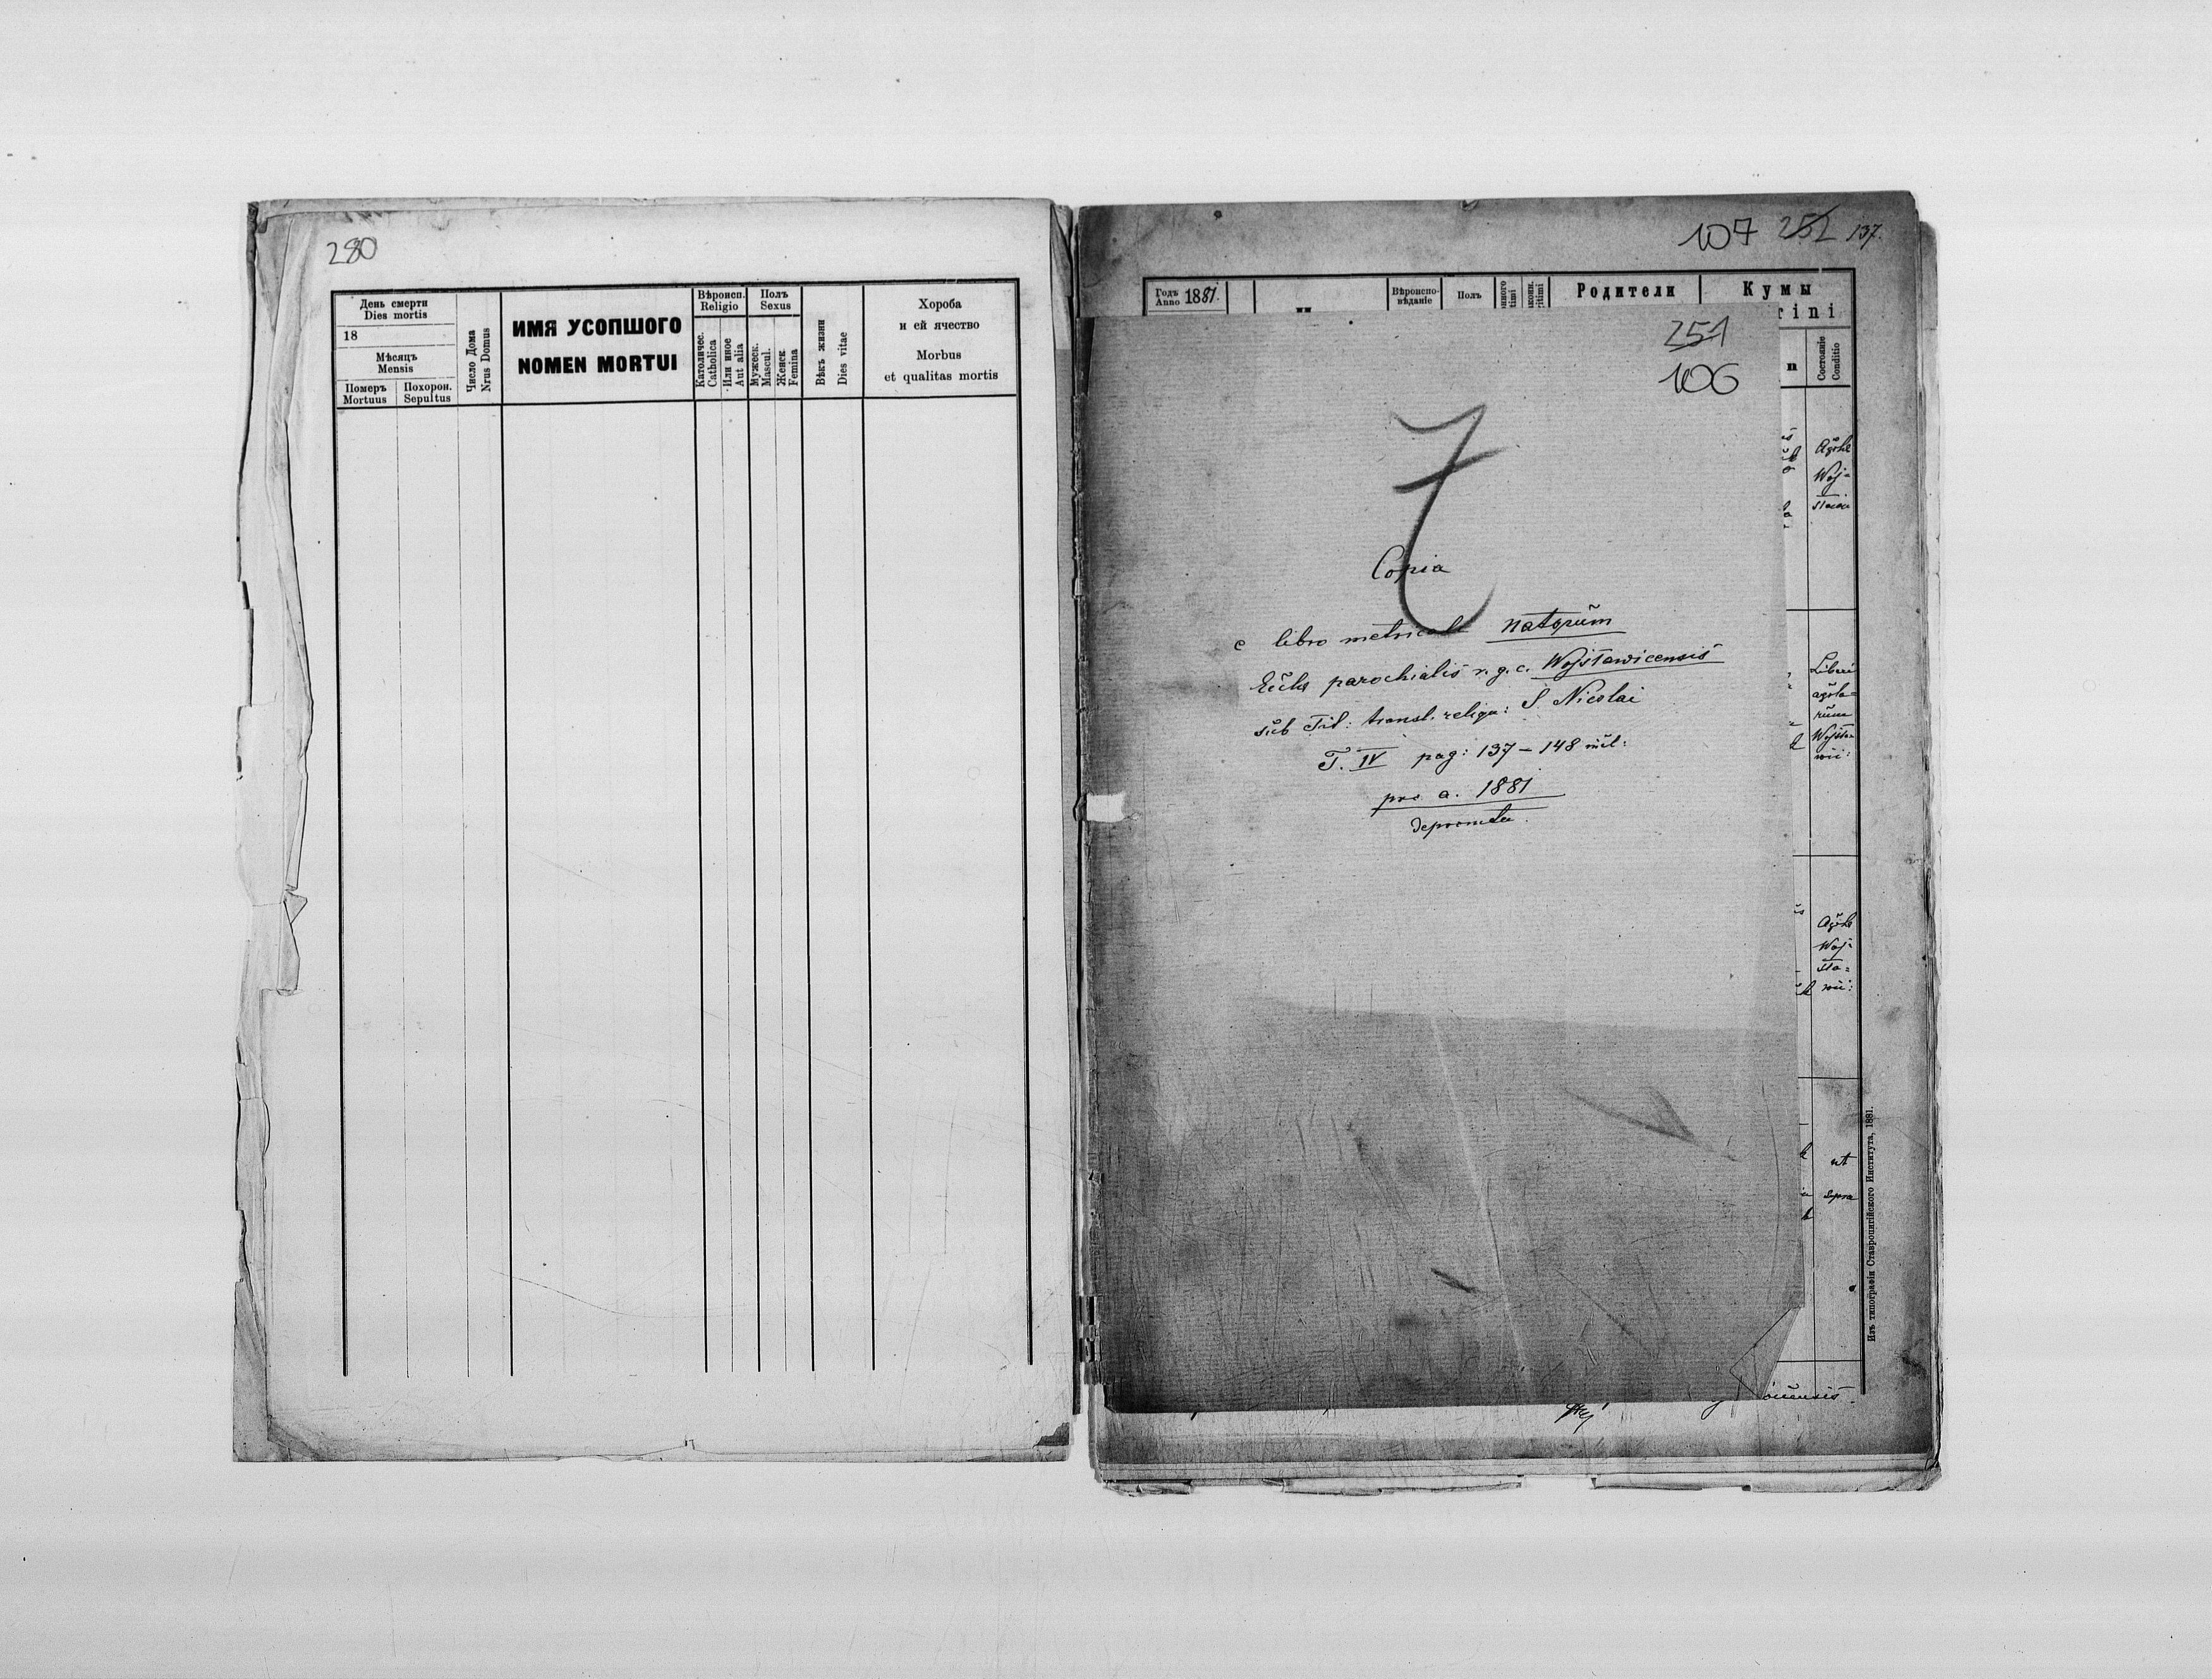 280
День смерти
Dies mortis
18
Мѣсяцъ
Mensis
Померъ
Mortuus
Похорон.
Sepultus
Число Дома
Nrus Domus
ИМЯ УСОПШОГО
NOMEN MORTUI
Вѣроисп.
Religio
Католичес.
Catholica
Или иное
Aut alia
Полъ
Sexus
Мужеск.
Mascul.
Женск
Femina
Вѣкъ жизни
Dies vitae
Хороба
и ей ячество
Morbus
et qualitas mortis
107 252 137.
Годъ
Anno 1881.
Вѣроиспо-
вѣданіе
Полъ
Родители
Кумы
rini
Состояніе
Conditio
251
106
7
Copia
e libro metricali natorum
Eccles parochialis r. g. c. Wojsławicensis
sub Tit: transl. reliqu: S Nicolai
T. IV pag: 137 – 148 incl:
pro a. 1881
deprompta.
Agrlae
Woj=
sławi
Liberi
agrla=
rum
Wojsła=
wic:
Agrla
Woj=
sła=
wic:
ut
supra
Изъ типографіи Ставропигійского Института, 1881.